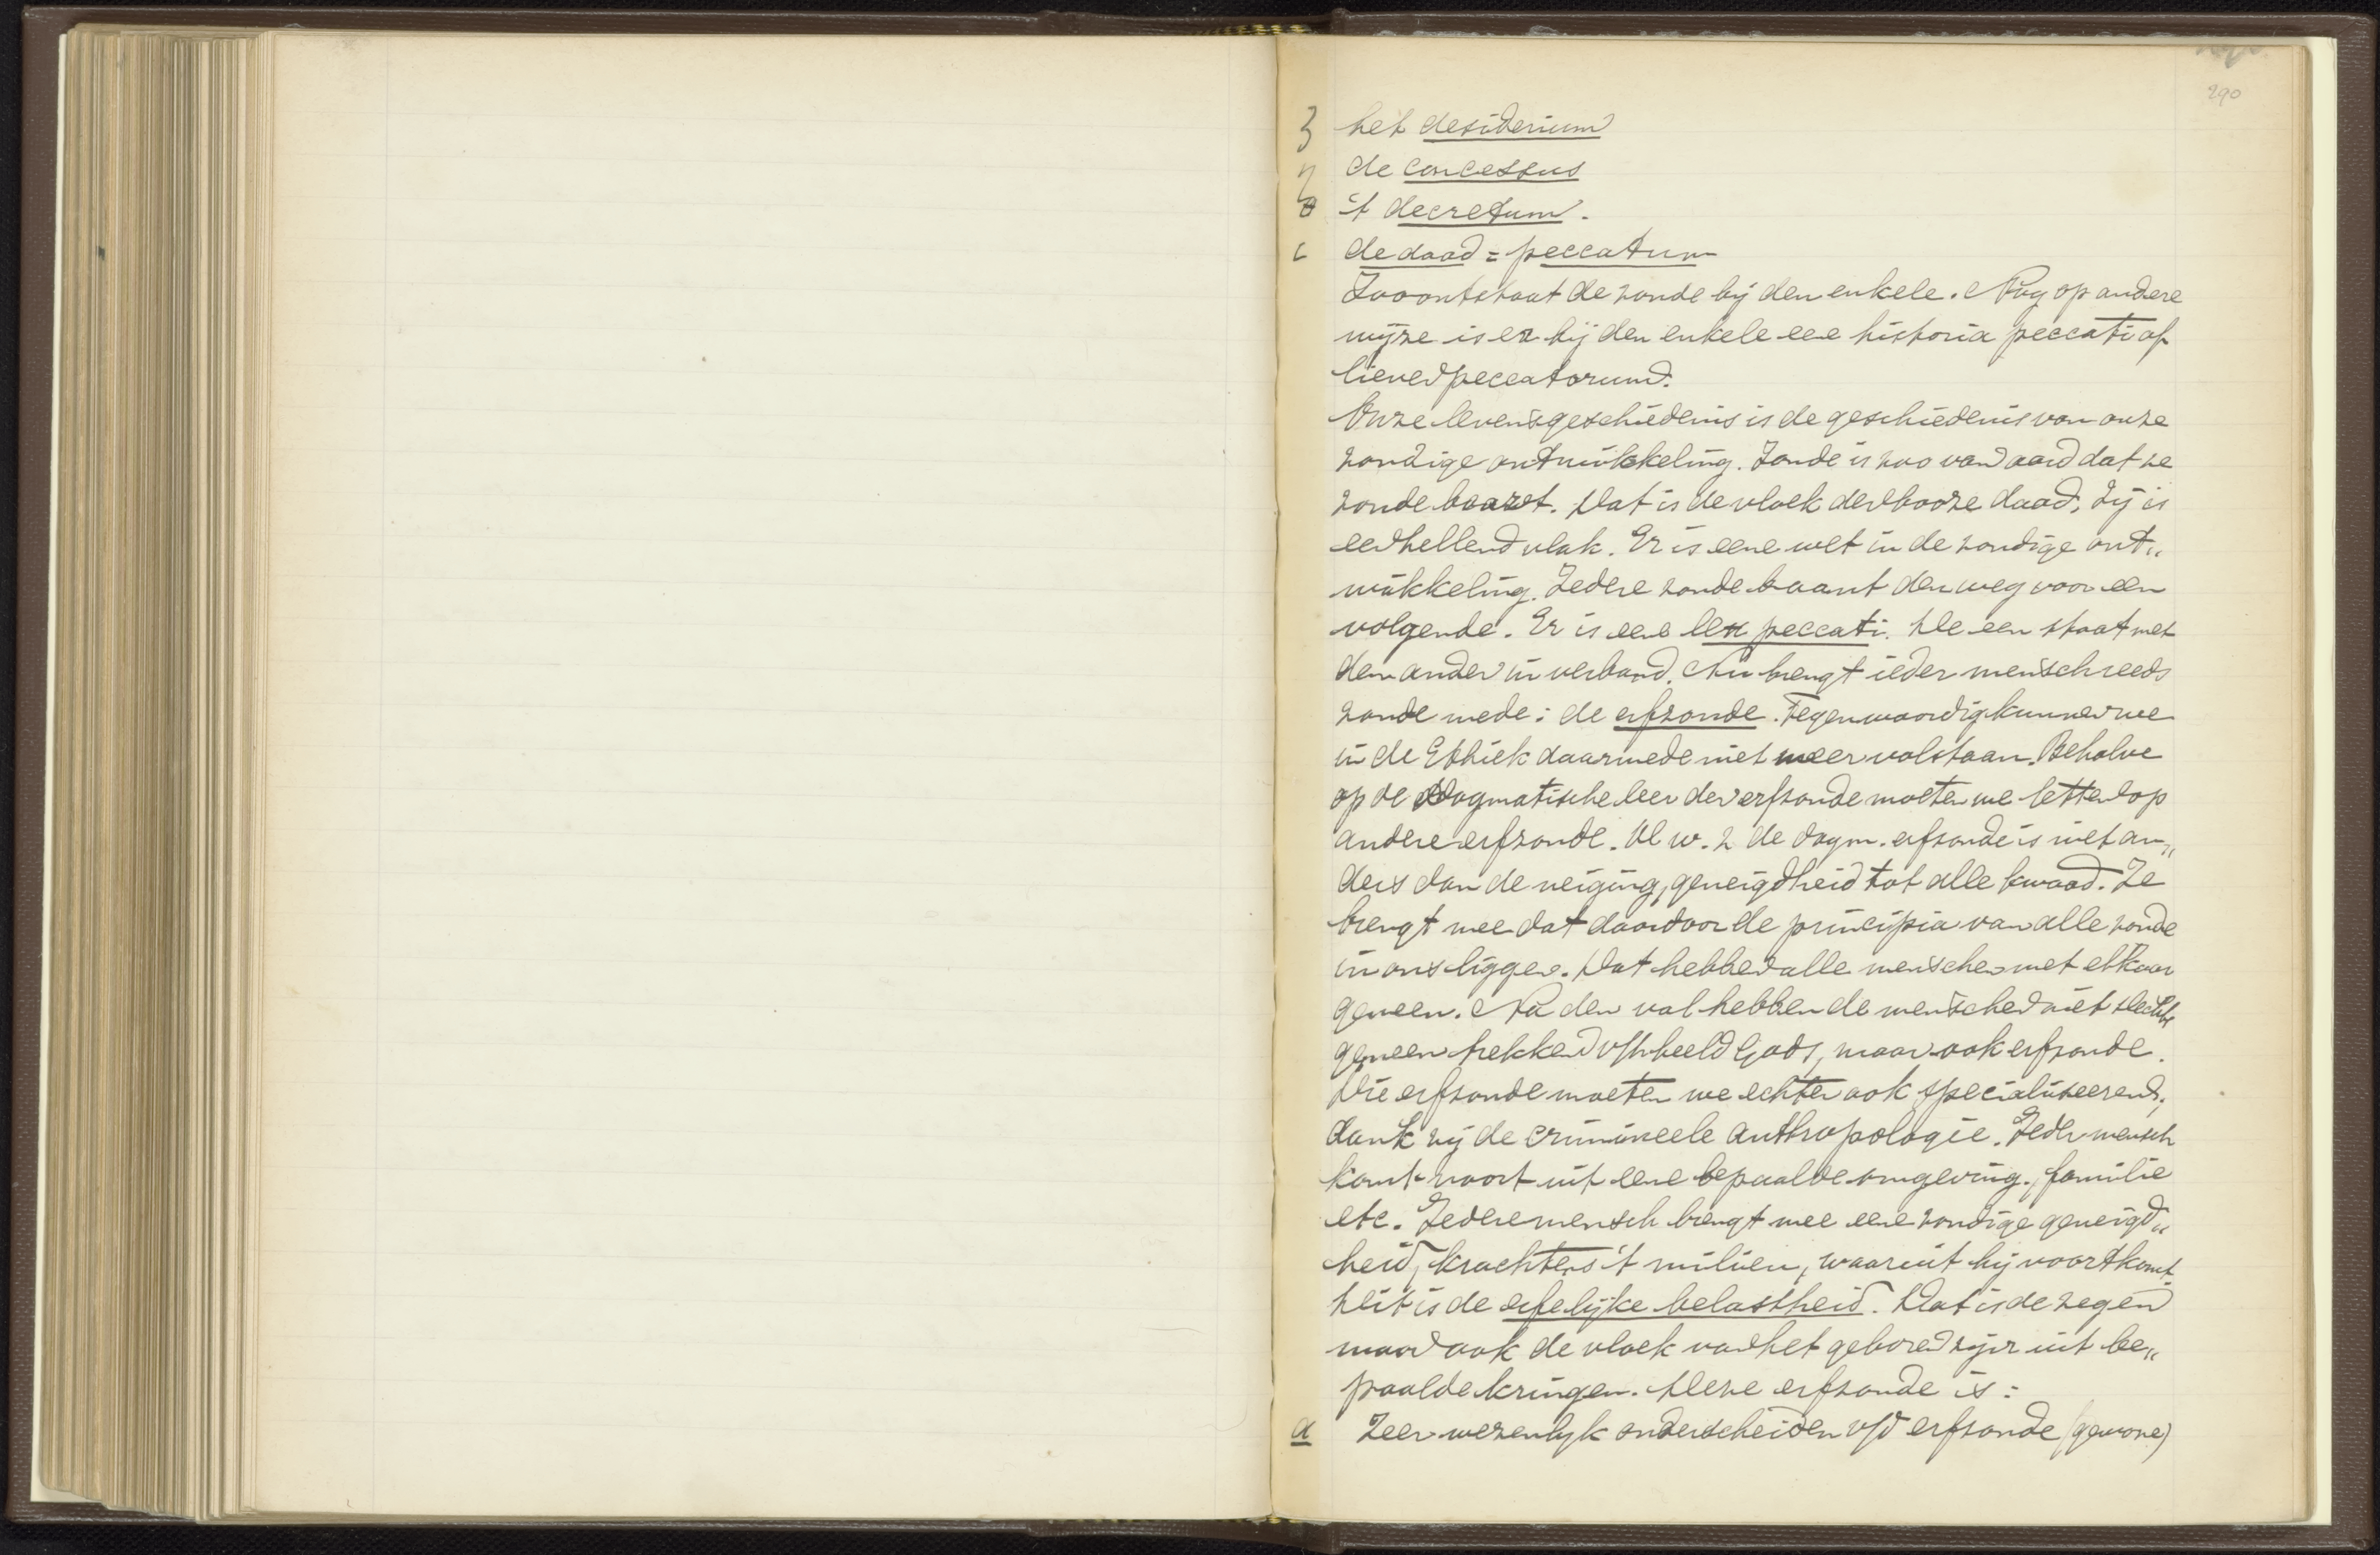 290
ζ het desiderium
η de concessus
θ 't decretum.
ι de daad = peccatum
Zoo ontstaat de zonde bij den enkele. Nog op andere
wijze is er bij den enkele eene historia peccati of
liever peccatorum.
Onze levensgeschiedenis is de geschiedenis van onze
zondige ontwikkeling. Zonde is zoo van aard dat ze
zonde baart. Dat is de vloek der booze daad. Zij is
een hellend vlak. Er is eene wet in de zondige ont„
wikkeling. Iedere zonde baant den weg voor een
volgende. Er is eene lex peccati. De een staat met
den ander in verband. Nu brengt ieder mensch reeds
zonde mede: de erfzonde. Tegenwoordig kunnen we
in de Ethiek daarmede niet meer volstaan. Behalve
op de dogmatische leer der erfzonde moeten we letten op
andere erfzonde. D. w. z de dogm. erfzonde is niet an„
ders dan de neiging, geneigdheid tot alle kwaad. Ze
brengt mee dat daardoor de principia van alle zonde
in ons liggen. Dat hebben alle menschen met elkaar
gemeen. Na den val hebben de menschen niet slechts
gemeen trekken v/h beeld Gods, maar ook erfzonde.
Die erfzonde moeten we echter ook specialiseeren,
dank zij de crimineele anthropologie. Ieder mensch
komt voort uit eene bepaalde omgeving, familie
etc. Iedere mensch brengt mee eene zondige geneigd„
heid, krachtens 't milieu, waaruit hij voortkomt.
Dit is de erfelijke belastheid. Dat is de zegen
maar ook de vloek van het geboren zijn uit be„
paalde kringen. Deze erfzonde is:
a Zeer wezenlijk onderscheiden v/d erfzonde (gewone)